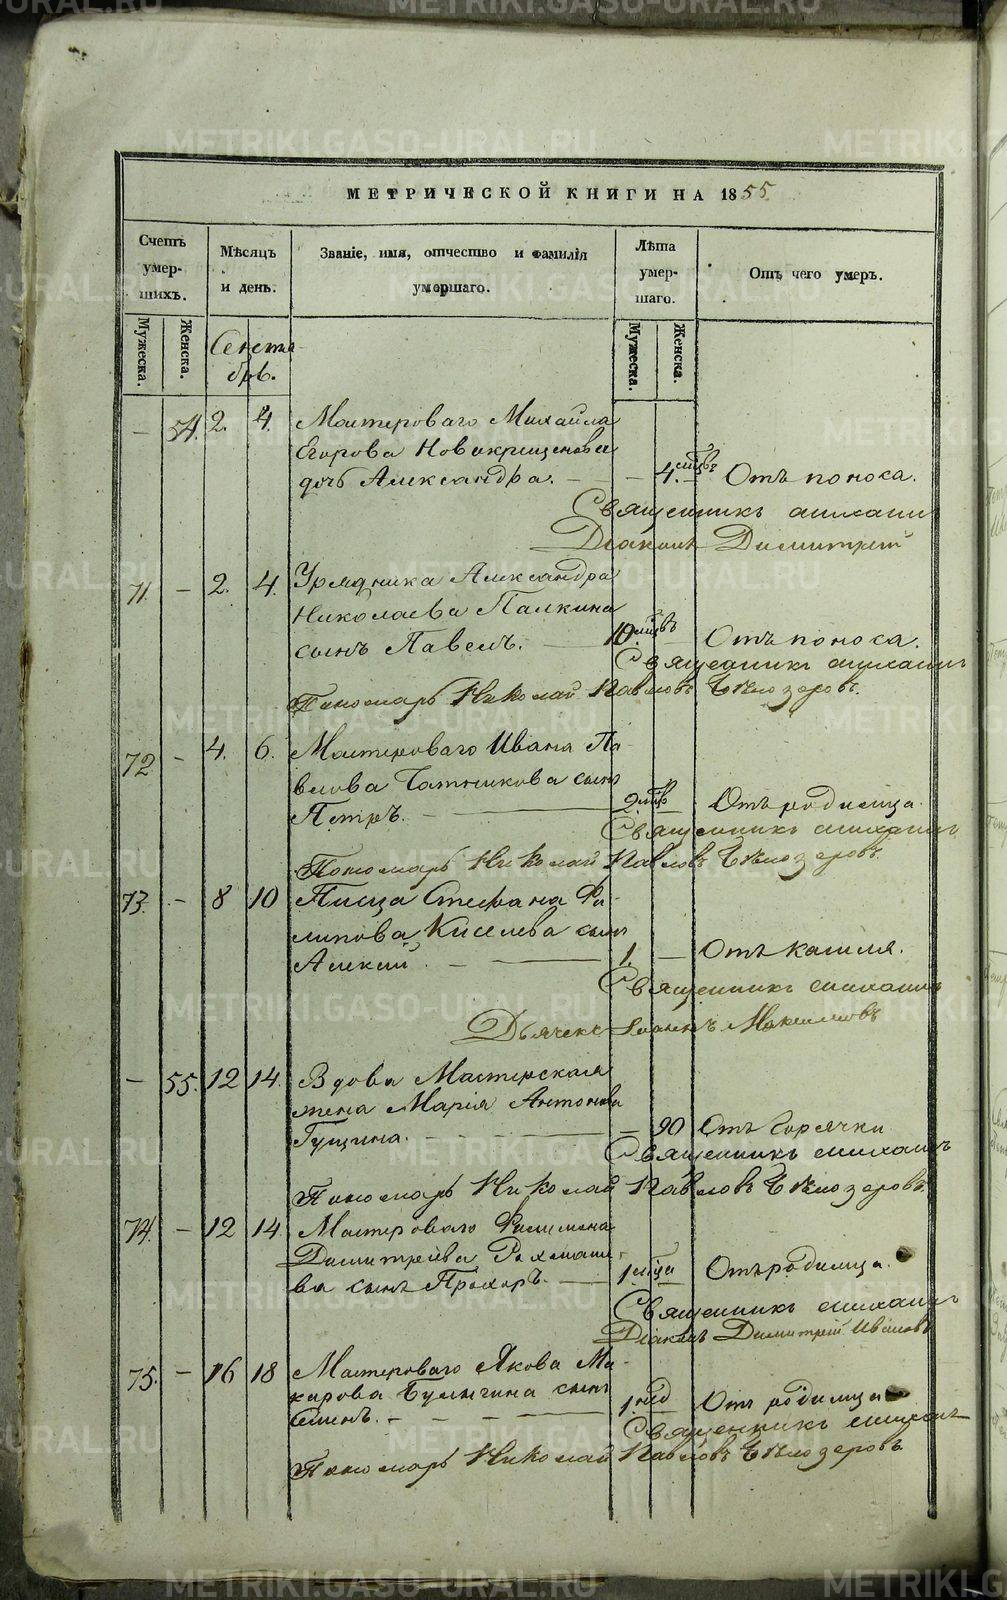 МЕТРИЧЕСКОЙ КНИГИ НА 1855
Счетъ умер-шихъ.
Мѣсяцъ и день.
Званіе, имя, отчество и фамилія умершаго.
Лѣта умер-шаго.
Отъ чего умеръ.
Мужеска. Женска.
Мужеска. Женска.
Сентя-
брь.
— 54. 2. 4. Мастероваго Михайла
Егорова Новокрещенова
дочь Александра. — — 4. мцвъ Отъ поноса.
Священникъ
Діаконъ Димитрій
71. — 2. 4. Урядника Александра
Николаева Палкина
сынъ Павелъ. — 10 мцвъ Отъ поноса.
Священникъ
Пономарь Николай Павловъ Бѣлозеровъ.
72 — 4. 6. Мастероваго Ивана Па-
влова сынъ
Петръ. — 2 Отъ родимца.
Священникъ
Пономарь Николай Павловъ Бѣлозеровъ.
73. — 8 10 Писца Стефана Фи-
липова Киселева сынъ
Алексій. — 1. — Отъ кашля.
Священникъ
Дьячекъ Іоаннъ Максимовъ
— 55. 12 14. Вдова Мастерская
жена Марія Антонова
Гущина. — — 90 Отъ Горячки
Священникъ
Пономарь Николай Павловъ Бѣлозеровъ.
74. — 12 14 Мастероваго Филимона
Димитріева Рахмани-
ва сынъ Прохоръ. — 1 мца Отъ родимца.
Священникъ
Діаконъ Димитрій Ивановъ
75. — 16 18 Мастероваго Якова Ма-
карова Булыгина сынъ
1 нед Отъ родимца
Священникъ
Пономарь Николай Павловъ Бѣлозеровъ
METRIKI.GASO-URAL.RU